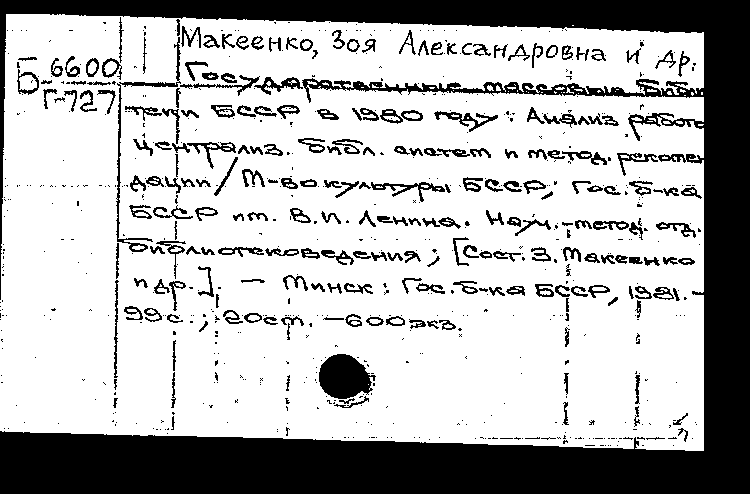 Макеенко, Зоя Александровна и др.
Б 6600
Г-727
Государственные массовые библи
теки БССР в 1980 году: Анализ работы
централиз. библ. систем и метод. рекомен
дации / М-во культуры БССР; Гос. б-ка
БССР им. В.И. Ленина. Науч.-метод. отд.
библиотековедения; [Сост. З. Макеенко
и др.]. — Минск: Гос. б-ка БССР, 1981. —
99 с.; 20 см. — 600 экз.